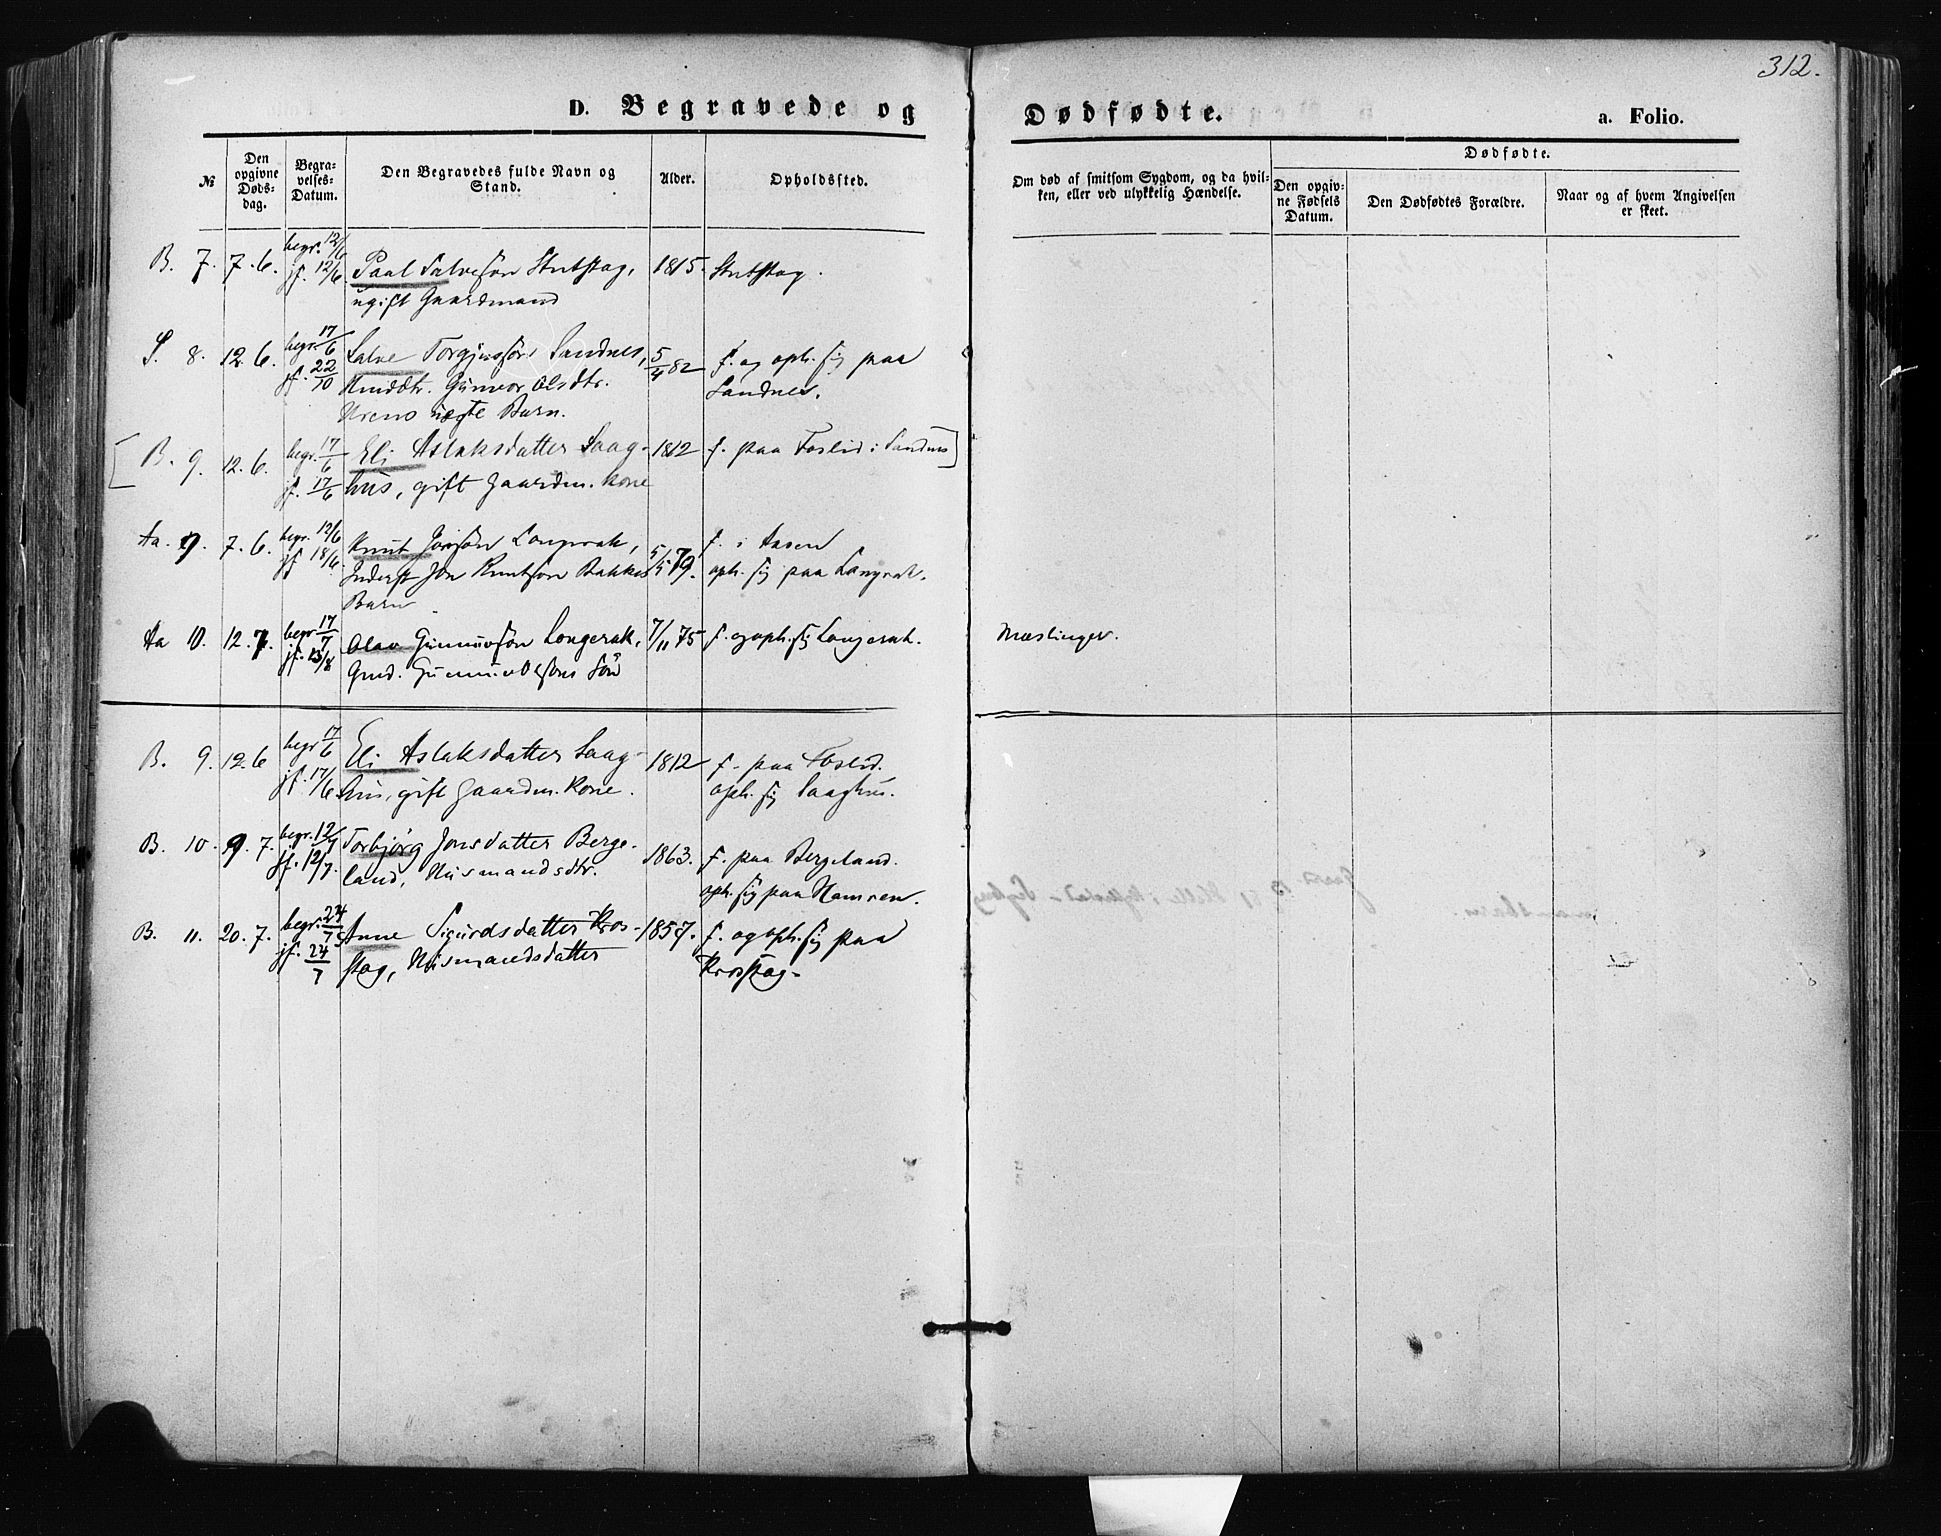 312.
D. Begravede og Dødfødte. a. Folio.
№
Den opgivne Døds-dag.
Begra-velses-Datum.
Den Begravedes fulde Navn og Stand.
Alder.
Opholdssted.
Om død af smitsom Sygdom, og da hvil-
ken, eller ved ulykkelig Hændelse.
Dødfødte.
Den opgiv-
ne Fødsels
Datum.
Den Dødfødtes Forældre.
Naar og af hvem Angivelsen
er skeet.
B. 7. 7. 6. begr. 12/6 jf. 12/6. Paal Salvesøn Stutstag, 1815. Stutstag.
ugift Gaardmand
S. 8. 12. 6. begr. 17/6 jf. 22/10 Salve Torgjussøn Sandnes, 5/4 82 f. og oph. sig paa
Gunvor Olsdtr. Sandnes.
Urens uegte Barn.
[B. 9. 12. 6. begr. 17/6 jf. 17/6 Eli Aslaksdatter Saag- 1812 f. paa Foslid i Sandnes]
hus, gift Gaardm. Kone
Aa. 9. 7. 6. begr. 12/6 jf 18/6. Knut Jonsøn Langerak, 5/5 79. f. i Aasen
Inderst Jon Knutsøn Bakkes oph. sig paa Langrak.
Barn
Aa 10. 12. 7. begr 17/7 jf. 13/8 Olav Gunnuvsøn Langerak, 7/11 75 f. og oph. sig Langerak. Mæslinger.
Gmd. Gunnuv Olsøns Søn
B. 9. 12. 6 begr 17/6 jf. 17/6 Eli Aslaksdatter Saag- 1812 f. paa Foslid.
hus, gift Gaardm. Kone. oph. sig Saaghus.
B. 10. 9. 7. begr. 12/7 jf. 12/7. Torbjørg Jonsdatter Berge- 1863. f. paa Bergeland.
land, Husmandsdtr. oph. sig paa Hamren.
B. 11. 20. 7. begr. 24/7 jf. 24/7 Anne Sigurdsdatter Kros- 1857. f. og oph. sig paa
stag, Husmandsdatter Krosstag.